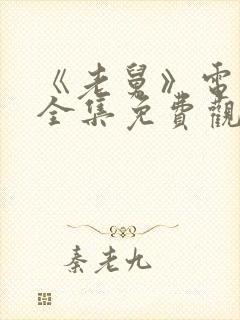 《老舅》電
全集免費觀
秦老九